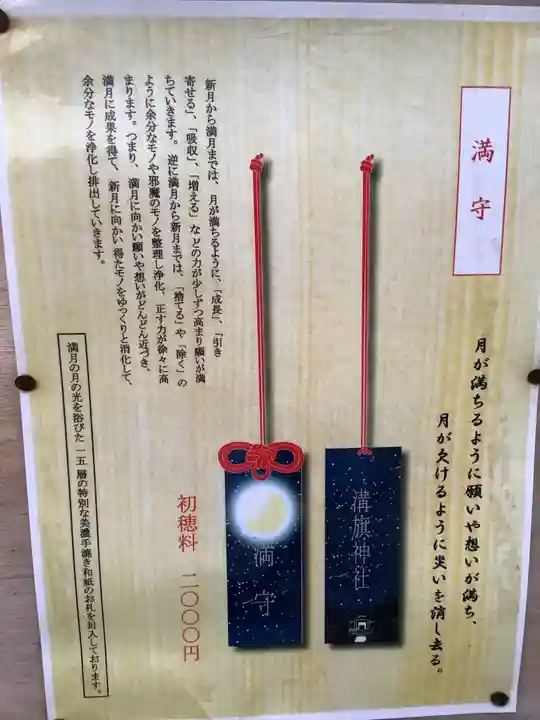 満守
月が満ちるように願いや想いが満ち、
月が欠けるように災いを消し去る。
溝旗神社
満守
初穂料 二〇〇〇円
新月から満月までは、月が満ちるように、「成長」、「引き
寄せる」、「吸収」、「増える」などの力が少しずつ高まり願いが満
ちていきます。逆に満月から新月までは、「捨てる」や「除く」の
ように余分なモノや邪魔のモノを整理し浄化、正す力が徐々に高
まります。つまり、満月に向かい願いや想いがどんどん近づき、
満月に成果を得て、新月に向かい得たモノをゆっくりと消化して、
余分なモノを浄化し排出していきます。
満月の月の光を浴びた一五層の特別な美濃手漉き和紙のお札を封入しております。